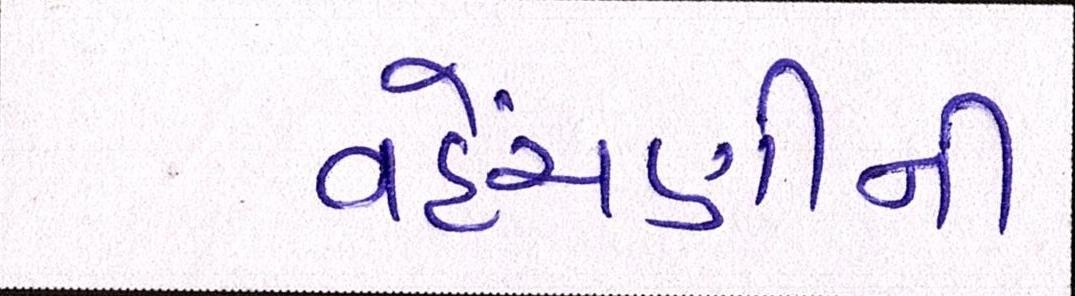 વહેંચણીની